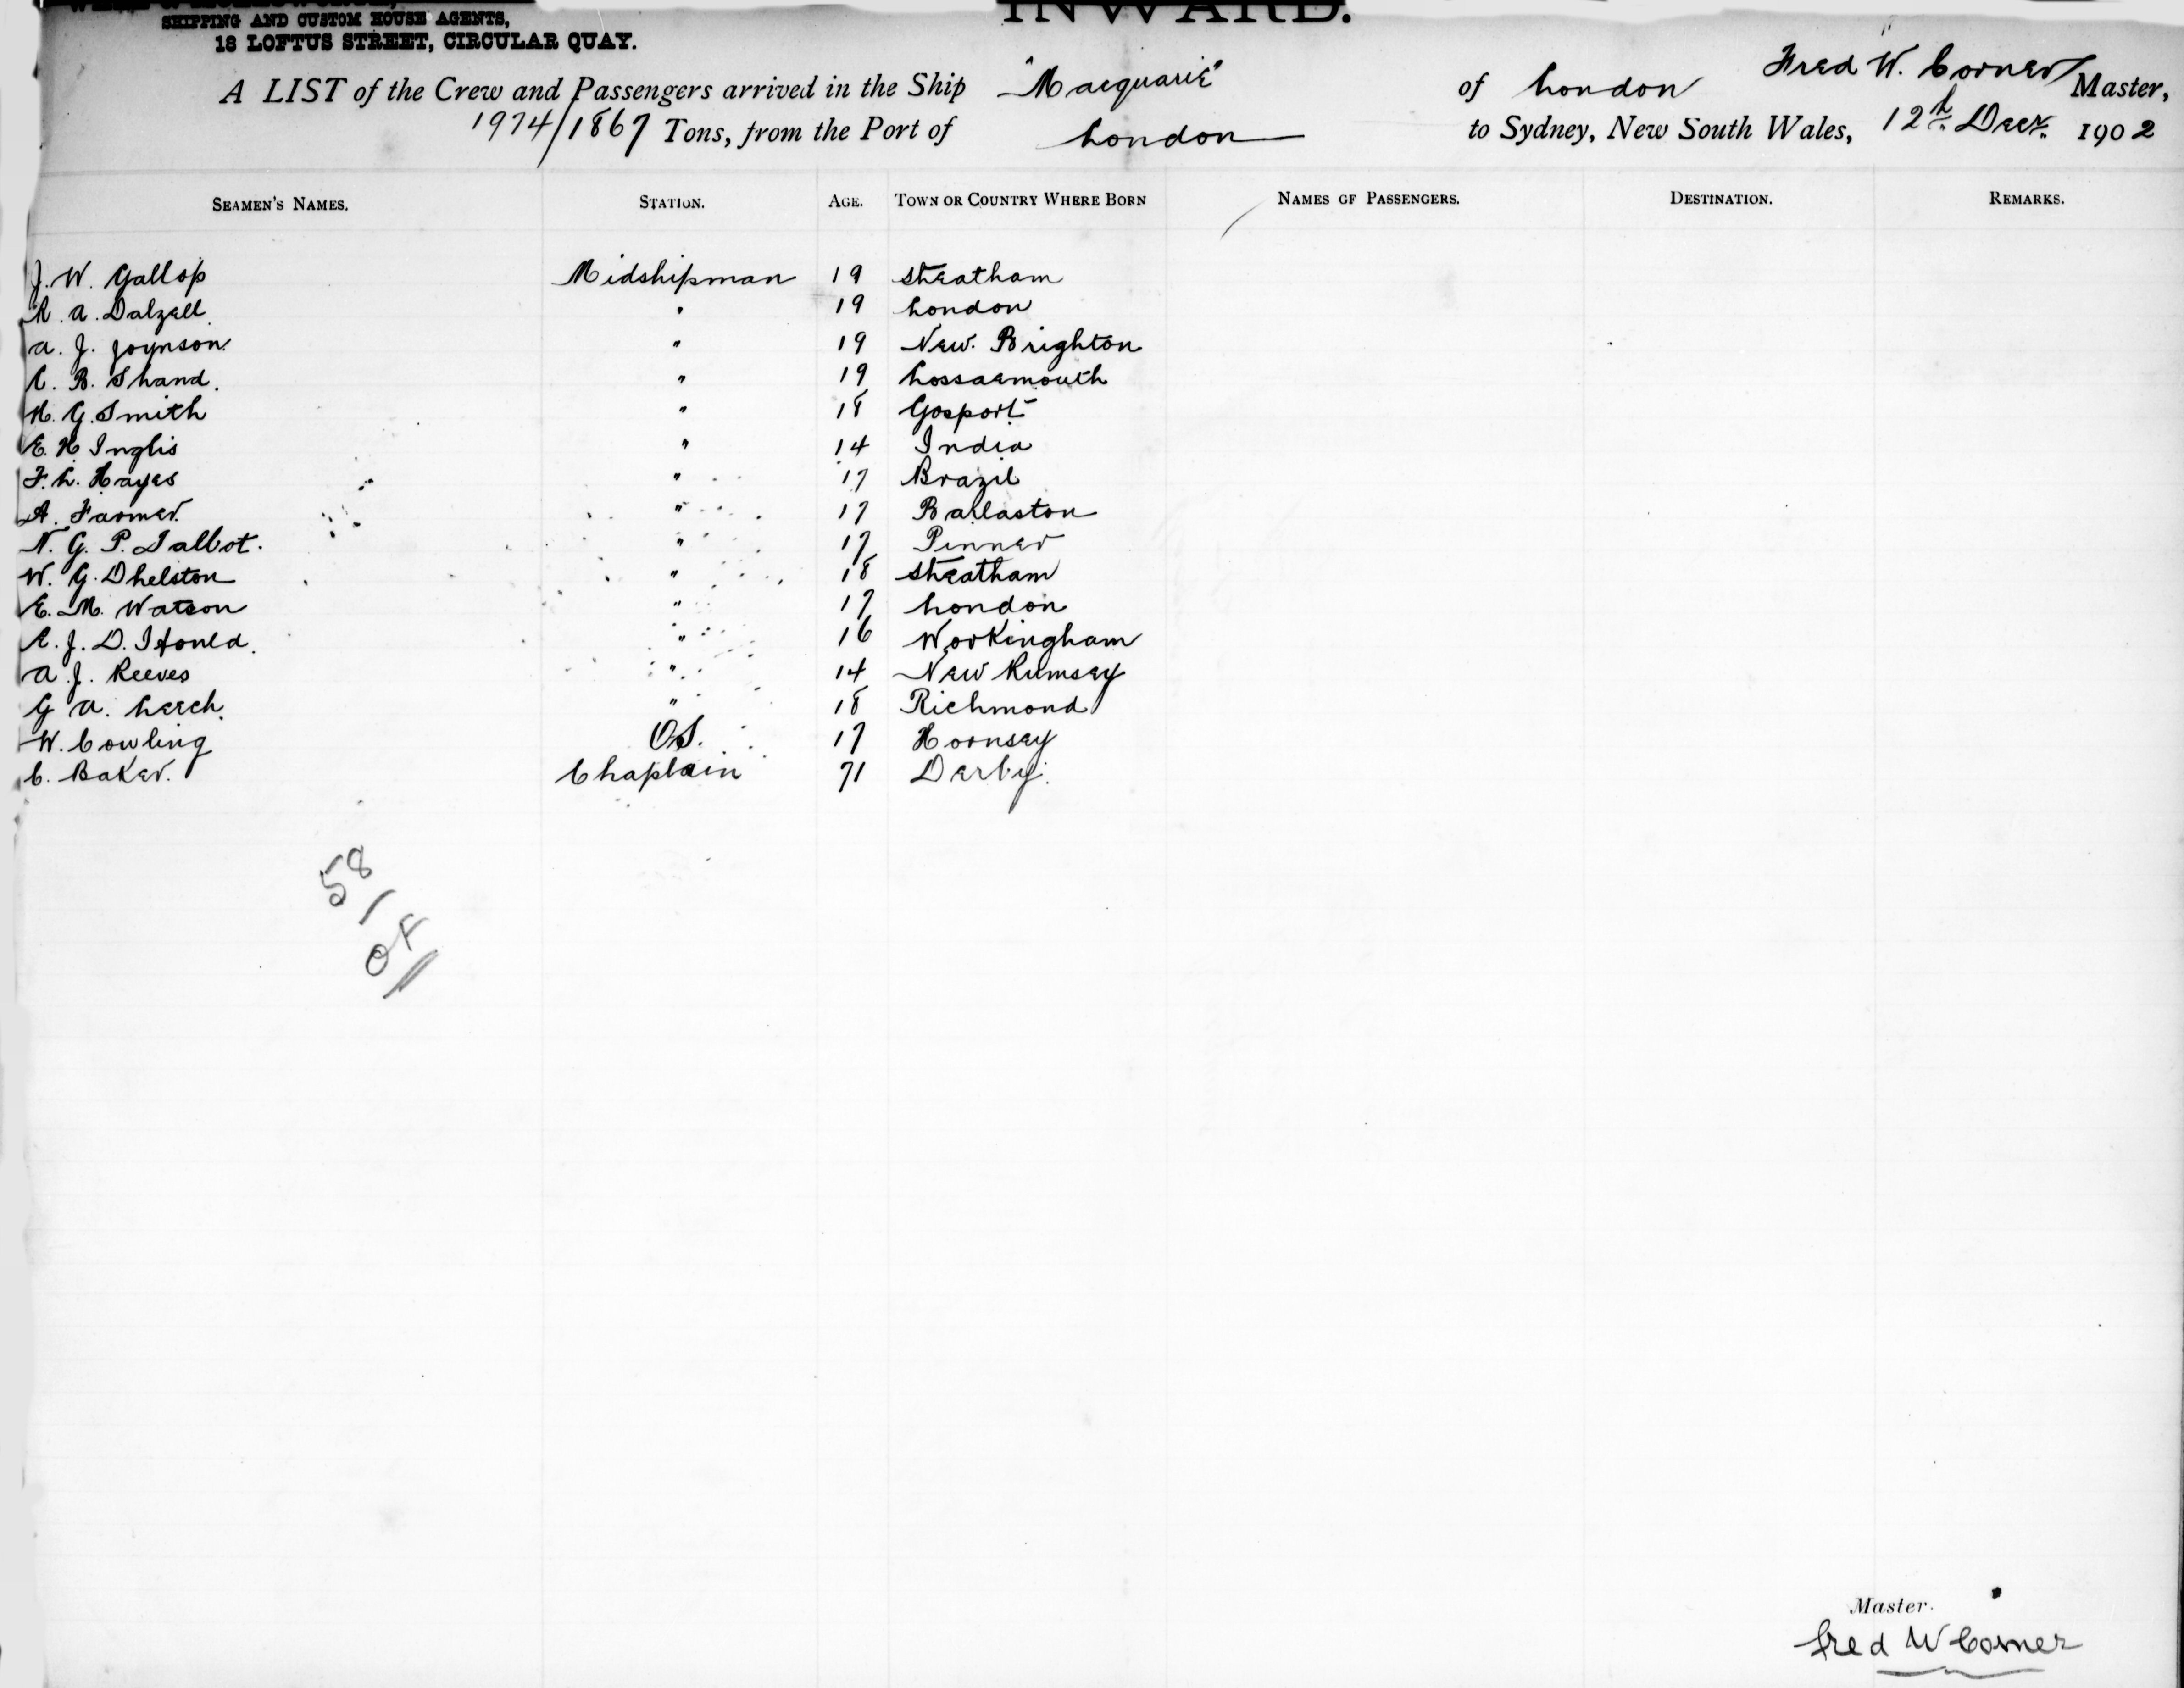 SHIPPING AND CUSTOM HOUSE AGENTS,
18 LOFTUS STREET, CIRCULAR QUAY.
INWARD.
A LIST of the Crew and Passengers arrived in the Ship "Macquarie" of London Fred W. Corner Master,
1974/1867 Tons, from the Port of London to Sydney, New South Wales, 12th Decr. 1902
SEAMEN'S NAMES. STATION. AGE. TOWN OR COUNTRY WHERE BORN NAMES OF PASSENGERS. DESTINATION. REMARKS.
J. W. Gallop Midshipman 19 Streatham
R. A. Dalzell " 19 London
A. J. Joynson " 19 New Brighton
C. B. Shand. " 19 Lossaemouth
H. G. Smith " 18 Gosport
E. H Inglis " 14 India
F. L. Hayes " 17 Brazil
A. Farmer. " 17 Barlaston
N. G. P. Talbot. " 17 Pinner
W. G. Dhelston " 18 Streatham
E. M. Watson " 17 London
E. J. D. " 16 Workingham
A. J. Reeves " 14 New Rumsey
G A. Leech. " 18 Richmond
W. Cowling O.S. 17 Hornsey
C. Baker. Chaplain 71 Derby.
58
Master.
Fred W Corner